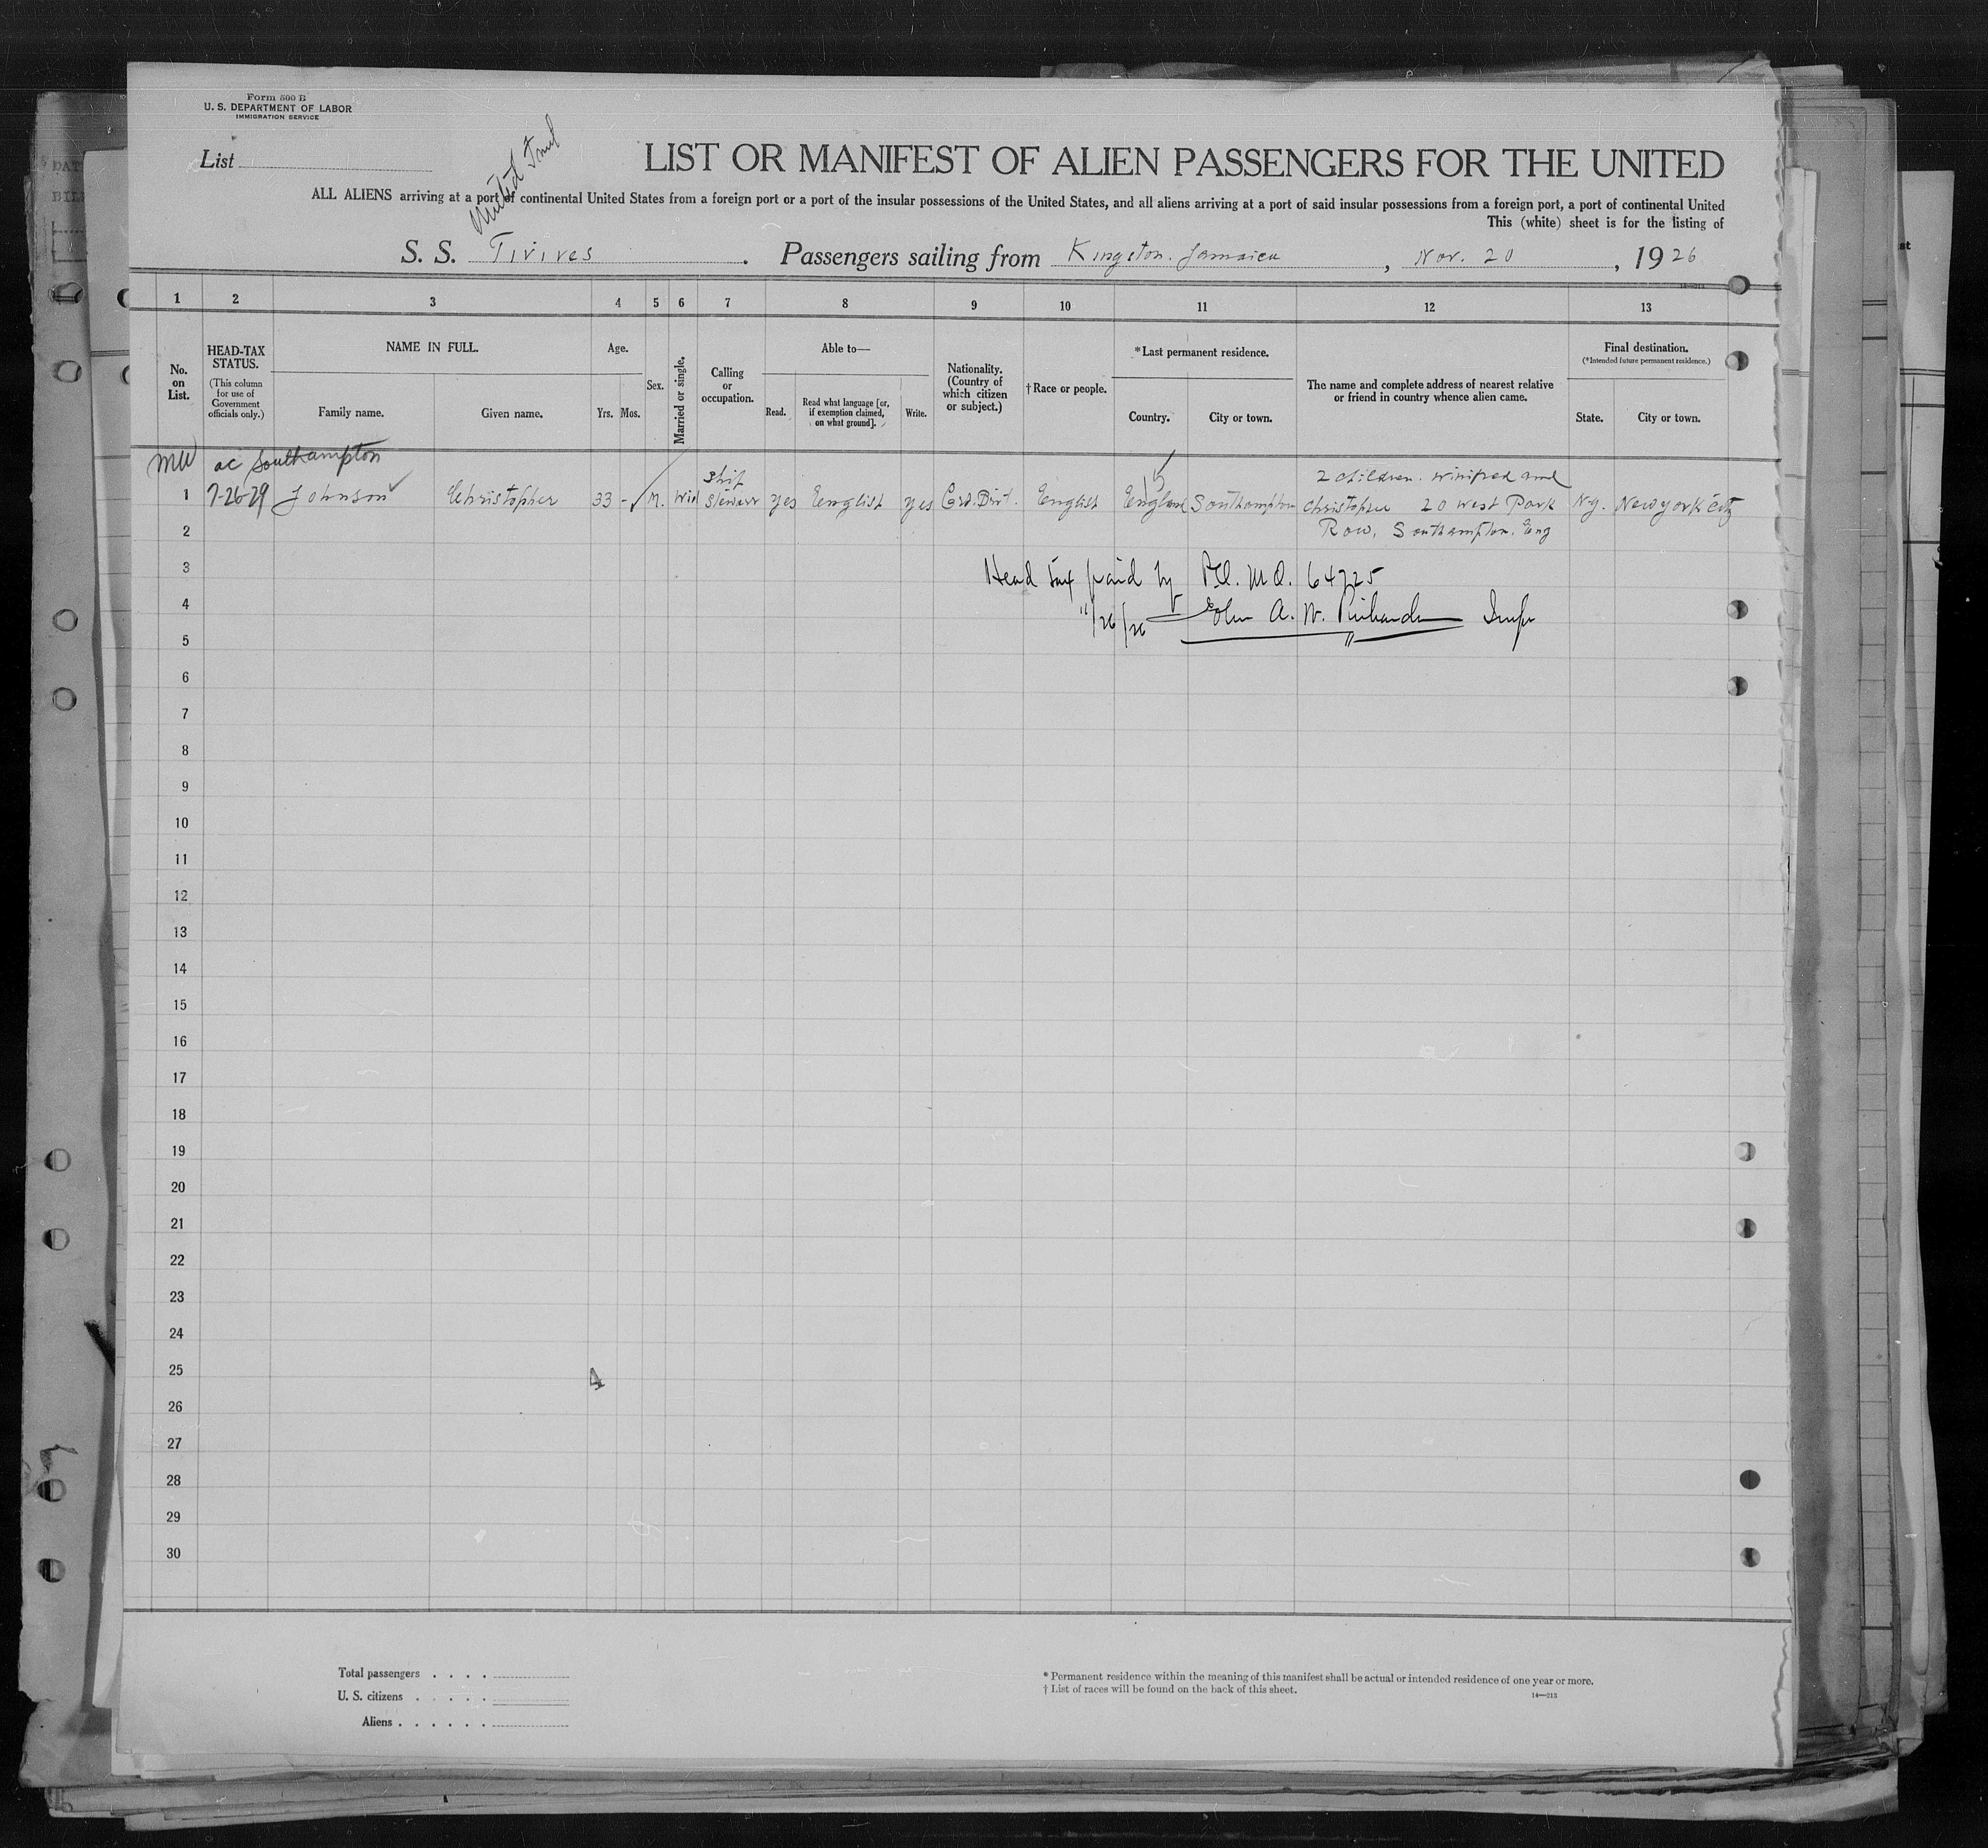 Form 500 B
U. S. DEPARTMENT OF LABOR
IMMIGRATION SERVICE
List
United Fruit
LIST OR MANIFEST OF ALIEN PASSENGERS FOR THE UNITED
ALL ALIENS arriving at a port of continental United States from a foreign port or a port of the insular possessions of the United States, and all aliens arriving at a port of said insular possessions from a foreign port, a port of continental United
This (white) sheet is for the listing of
S. S. Tivives . Passengers sailing from Kingston. Jamaica , Nov. 20 , 1926
1 2 3 4 5 6 7 8 9 10 11 12 13
No. on List.
HEAD-TAX STATUS.
(This column for use of Government officials only.)
NAME IN FULL.
Family name.
Given name.
Age.
Yrs. Mos.
Sex.
Married or single.
Calling or occupation.
Able to—
Read.
Read what language [or, if exemption claimed, on what ground].
Write.
Nationality. (Country of which citizen or subject.)
† Race or people.
* Last permanent residence.
Country.
City or town.
The name and complete address of nearest relative or friend in country whence alien came.
Final destination.
(*Intended future permanent residence.)
State.
City or town.
MW ac Southampton
15
1 7-26-29 Johnson Christopher 33 - M. Wid Ship Steward yes English yes Grt. Brit. English England Southampton 2 children. Winifred and Christopher 20 West Park Row, Southampton. Eng N.Y. New York City
2
3
Head tax paid by P.O. M.O. 64225
4
11/26/26 John A. W. Insp
5
6
7
8
9
10
11
12
13
14
15
16
17
18
19
20
21
22
23
24
25
4
26
27
28
29
30
Total passengers . . . .
U. S. citizens . . . . .
Aliens . . . . . .
* Permanent residence within the meaning of this manifest shall be actual or intended residence of one year or more.
† List of races will be found on the back of this sheet.
14—213